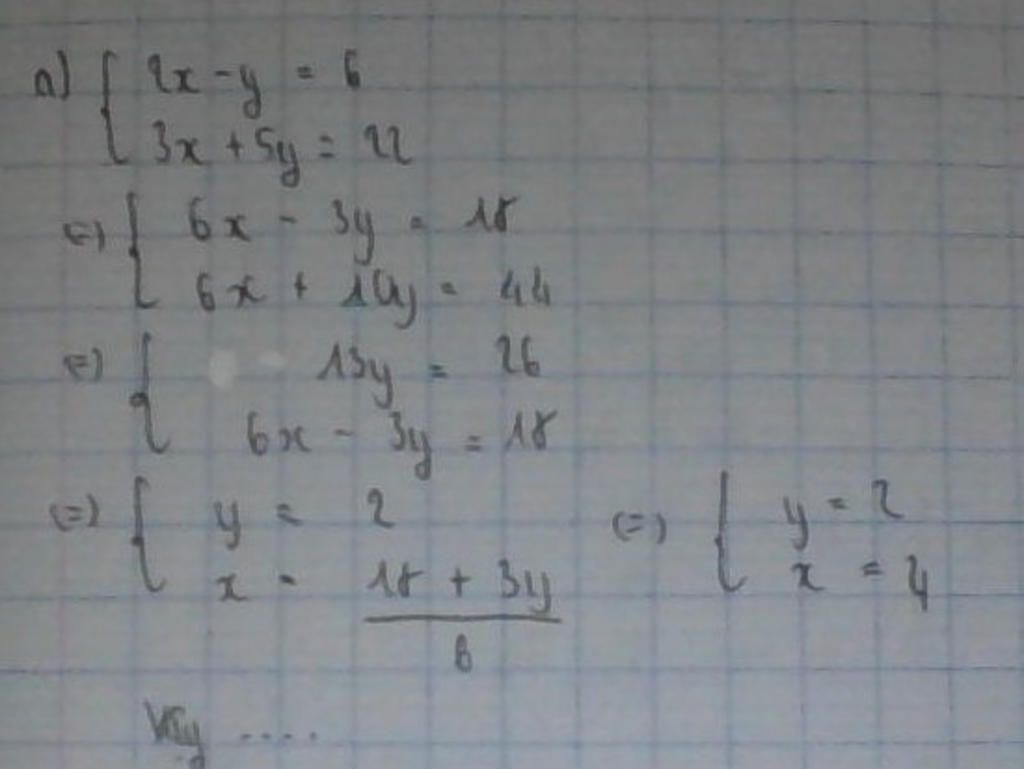 a) { 2x - y = 6
3x + 5y = 22
(=) { 6x - 3y = 18
6x + 10y = 44
(=) { 13y = 26
6x - 3y = 18
(=) { y = 2
x = (18 + 3y)/6
(=) { y = 2
x = 4
Vậy ....